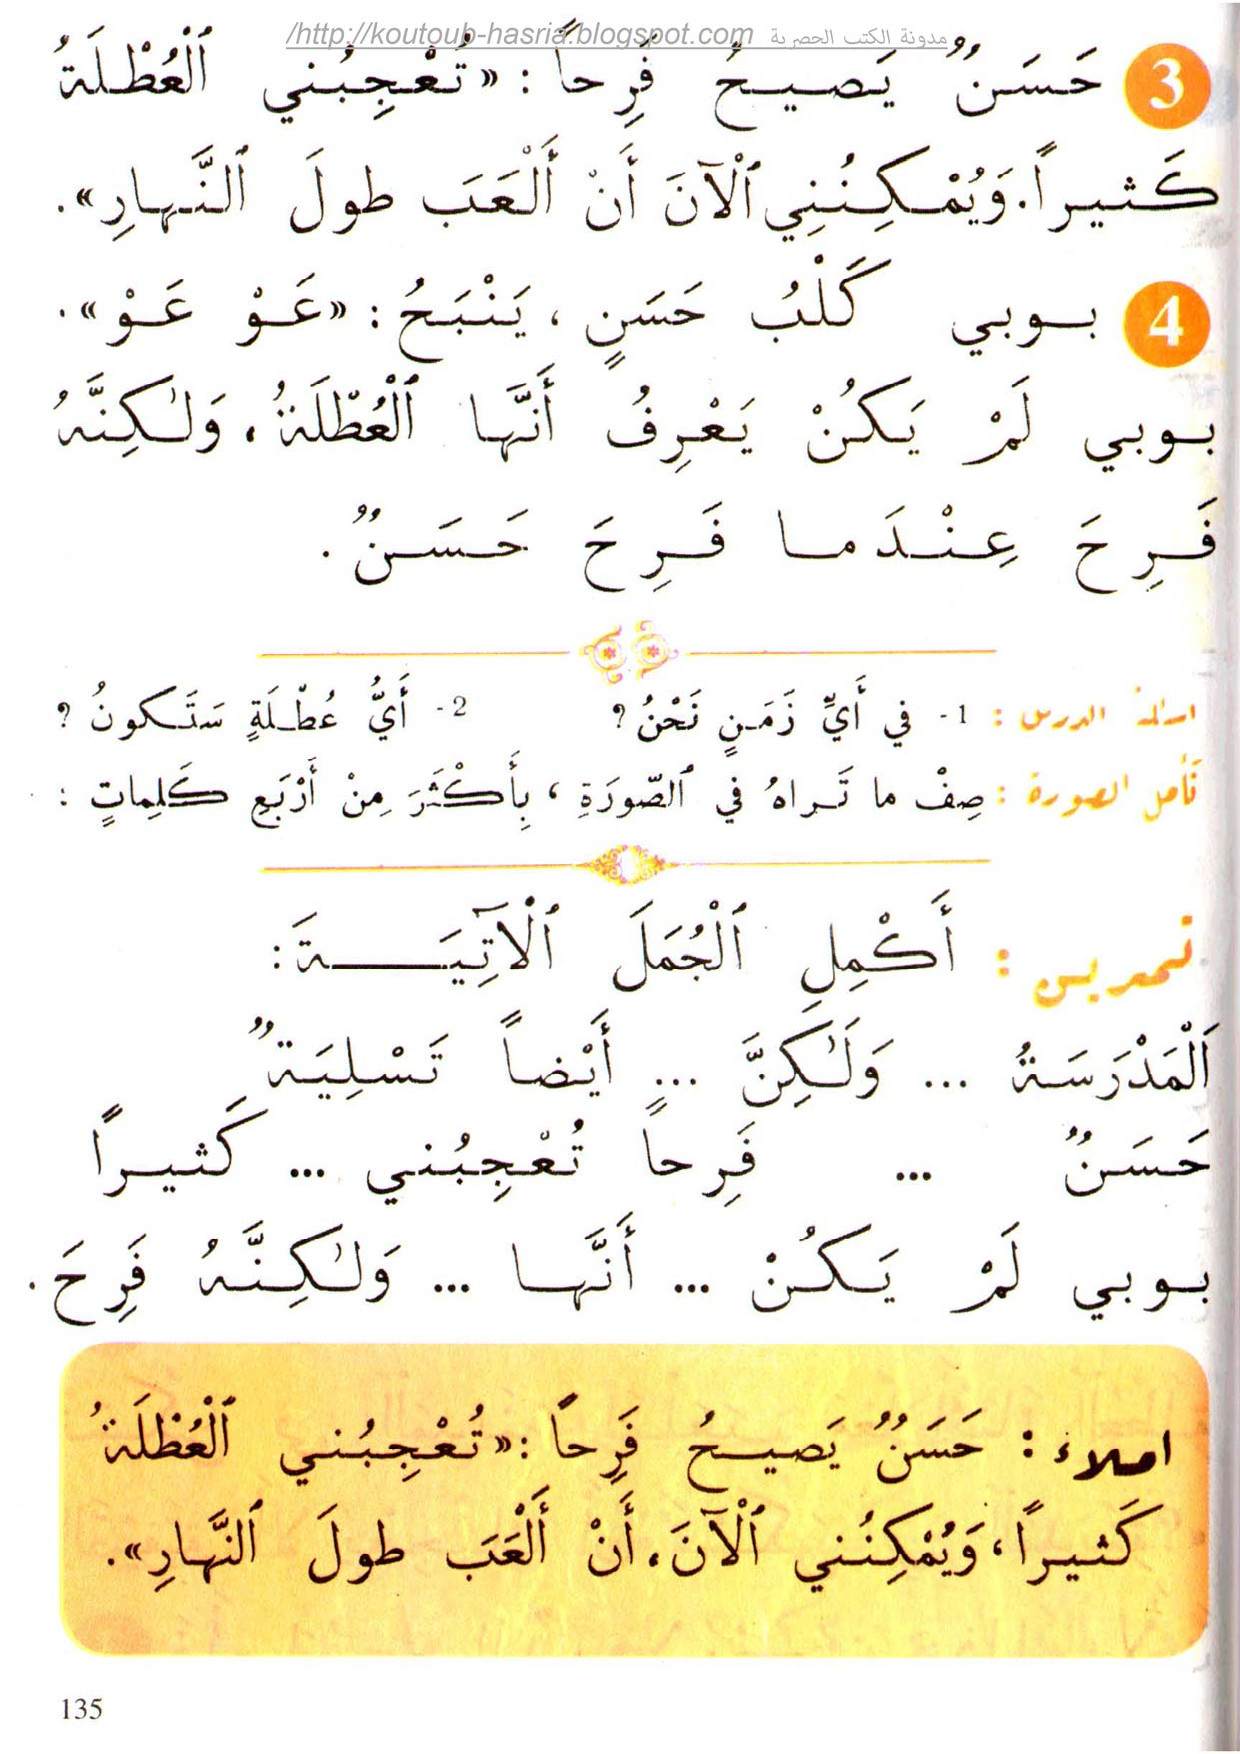 مدونة الكتب الحصرية http://koutoub-hasria.blogspot.com/
3 حَسَنٌ يَصيحُ فَرِحاً : «تُعْجِبُني ٱلْعُطْلَةُ
كَثيراً. وَيُمْكِنُنِي ٱلْآنَ أَنْ أَلْعَبَ طولَ ٱلنَّهارِ».
4 بوبي كَلْبُ حَسَنٍ ، يَنْبَحُ : «عَوْ عَوْ».
بوبي لَمْ يَكُنْ يَعْرِفُ أَنَّها ٱلْعُطْلَةُ ، وَلٰكِنَّهُ
فَرِحَ عِنْدَما فَرِحَ حَسَنٌ .
اسئلة الدرس : 1 - في أَيِّ زَمَنٍ نَحْنُ ؟ 2 - أَيُّ عُطْلَةٍ سَتَكونُ ؟
تأمل الصورة : صِفْ ما تَراهُ في ٱلصّورَةِ ، بِأَكْثَرَ مِنْ أَرْبَعِ كَلِماتٍ :
تمرين : أَكْمِلِ ٱلْجُمَلَ ٱلْآتِيَةَ :
اَلْمَدْرَسَةُ ... وَلَٰكِنَّ ... أَيْضاً تَسْلِيَةٌ
حَسَنٌ ... فَرِحاً تُعْجِبُني ... كَثيراً
بوبي لَمْ يَكُنْ ... أَنَّها ... وَلٰكِنَّهُ فَرِحَ .
املاء : حَسَنٌ يَصيحُ فَرِحاً : «تُعْجِبُني ٱلْعُطْلَةُ
كَثيراً ، وَيُمْكِنُني ٱلْآنَ ، أَنْ أَلْعَبَ طولَ ٱلنَّهارِ».
135